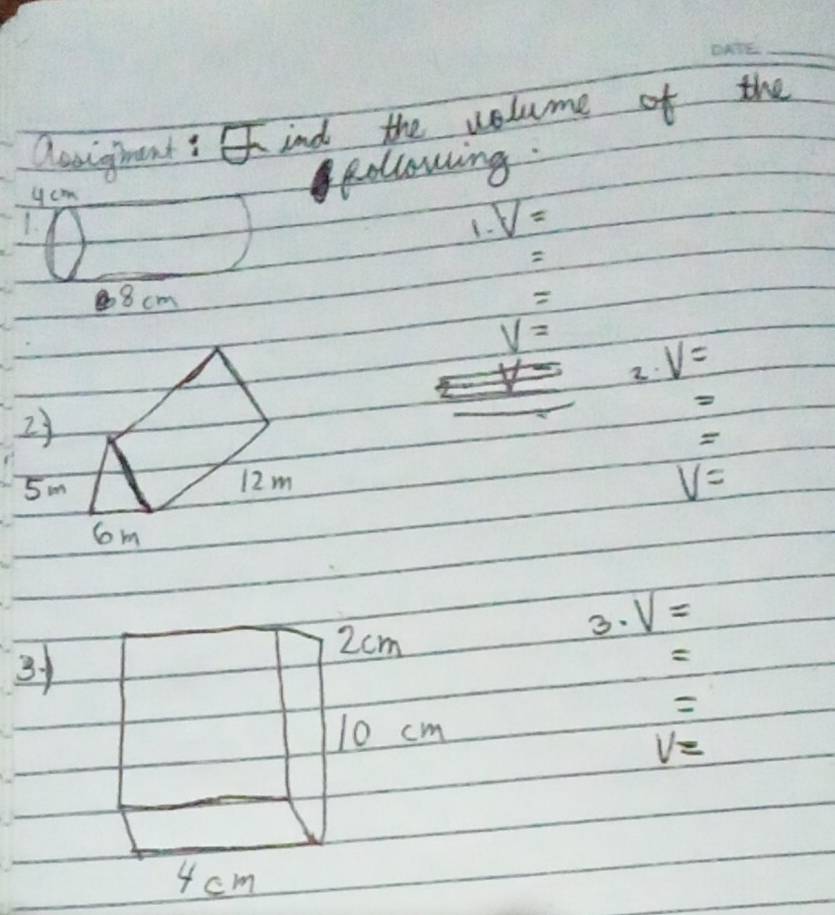 DATE
Assigment: Find the volume of the
following.
4cm
1.
8cm
1. V=
=
=
V=
2. V=
=
=
V=
2)
5m
12m
6m
3.)
2cm
10 cm
4cm
3. V=
=
=
V=